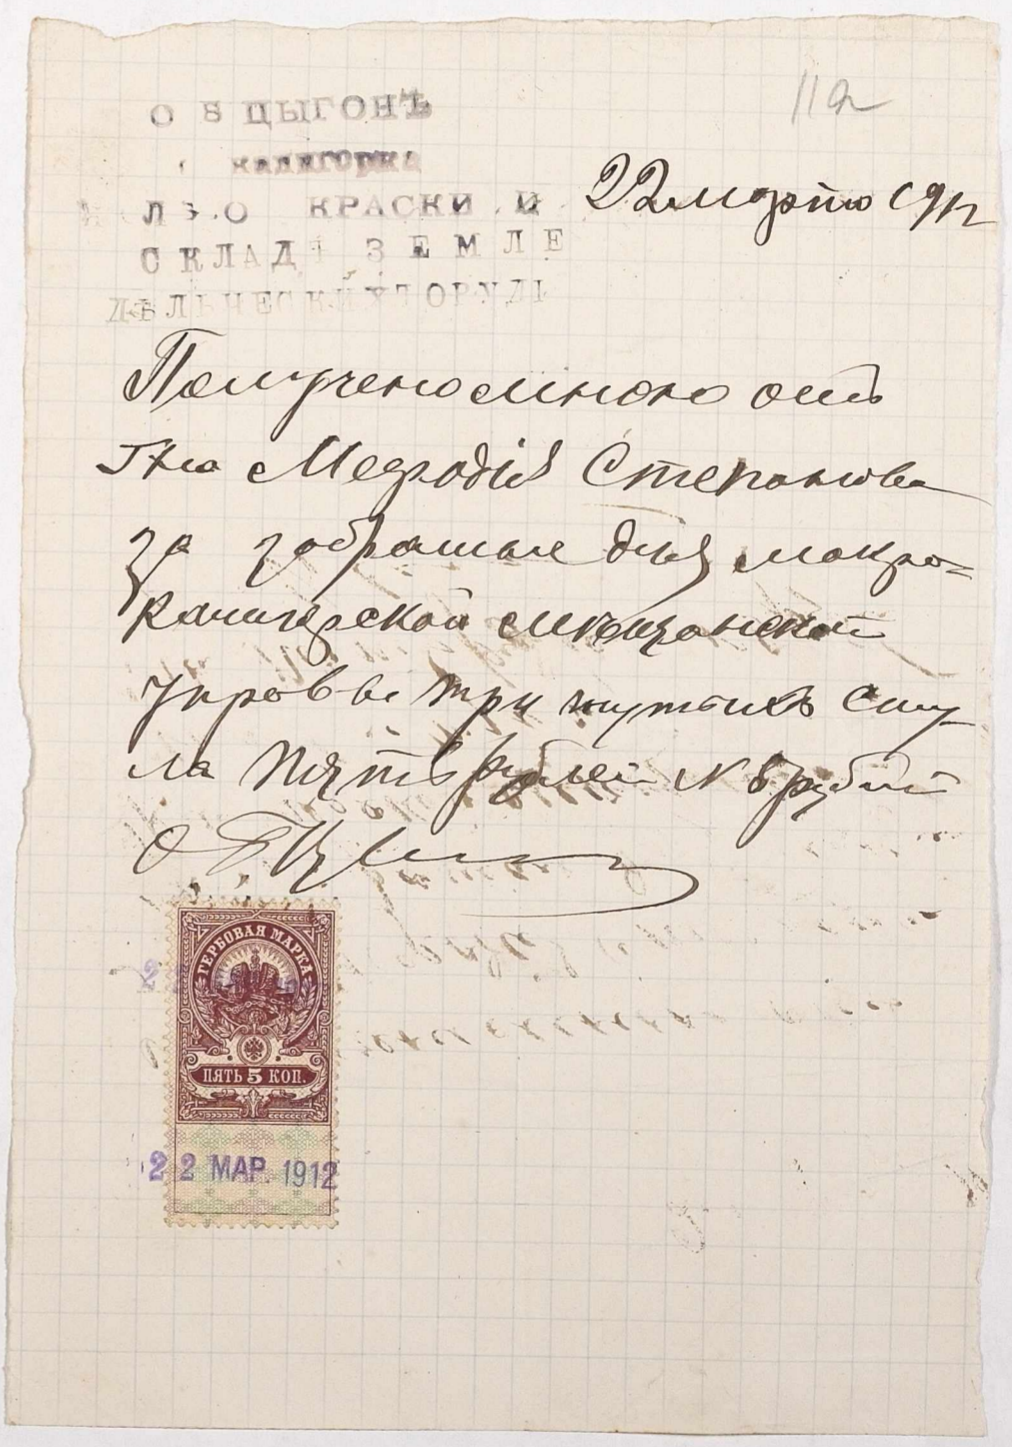 О Б ЦЫГОНЪ
Калагорка
КРАСКИ И
СКЛАДЪ ЗЕМЛЕ
ДѢЛЬЧЕСКИХЪ ОРУДІ
22 марта 1912
Получено мною отъ
Г-на Мефодія Степанова
за забратые для мокро-
Калигорской мѣщанской
управы три гнутыхъ сту
ла пять рублей
ГЕРБОВАЯ МАРКА
ПЯТЬ 5 КОП.
22 МАР. 1912